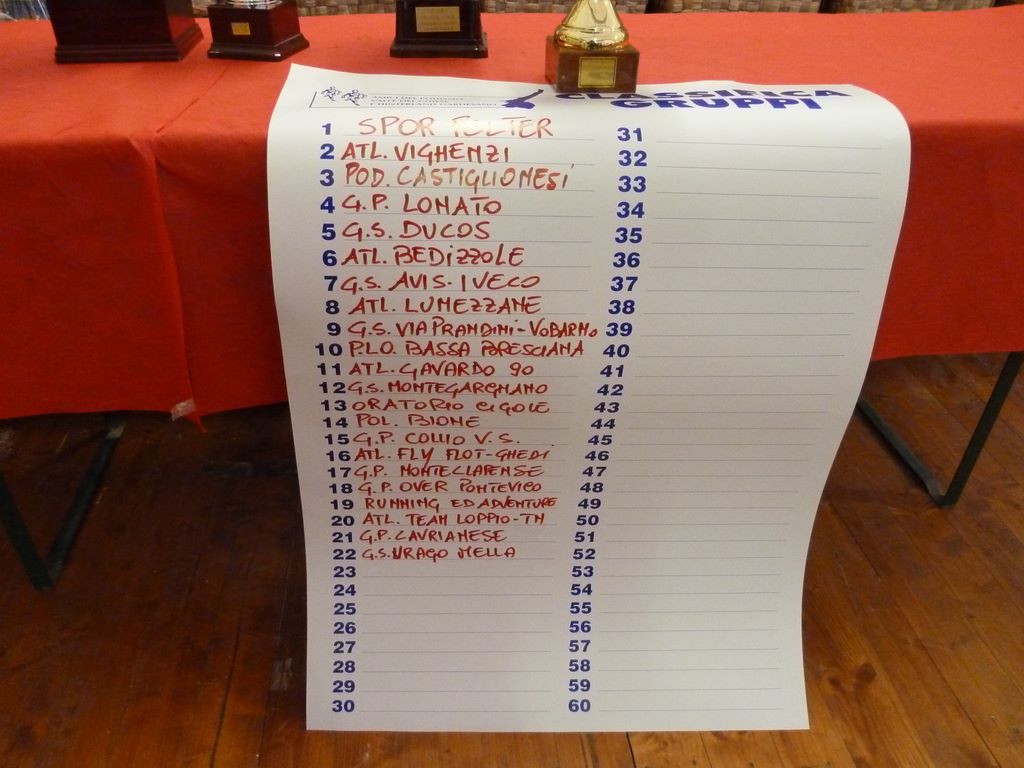 AMICI DEL PODISMO
VALLE DEL CHIESE
E HINTERLAND GARDESANO
CLASSIFICA
GRUPPI
1 SPOR FELTER
2 ATL. VIGHENZI
3 POD. CASTIGLIONESI
4 G.P. LONATO
5 G.S. DUCOS
6 ATL. BEDIZZOLE
7 G.S. AVIS-IVECO
8 ATL. LUMEZZANE
9 G.S. VIA PRANDINI-VOBARNO
10 P.LO. BASSA BRESCIANA
11 ATL. GAVARDO 90
12 G.S. MONTEGARGNANO
13 ORATORIO CIGOLE
14 POL. BIONE
15 G.P. COLLIO V.S.
16 ATL. FLY FLOT-GHEDI
17 G.P. MONTECLARENSE
18 G.P. OVER PONTEVICO
19 RUNNING ED ADVENTURE
20 ATL. TEAM LOPPIO-TN
21 G.P. CAVRIANESE
22 G.S. URAGO MELLA
23
24
25
26
27
28
29
30
31
32
33
34
35
36
37
38
39
40
41
42
43
44
45
46
47
48
49
50
51
52
53
54
55
56
57
58
59
60